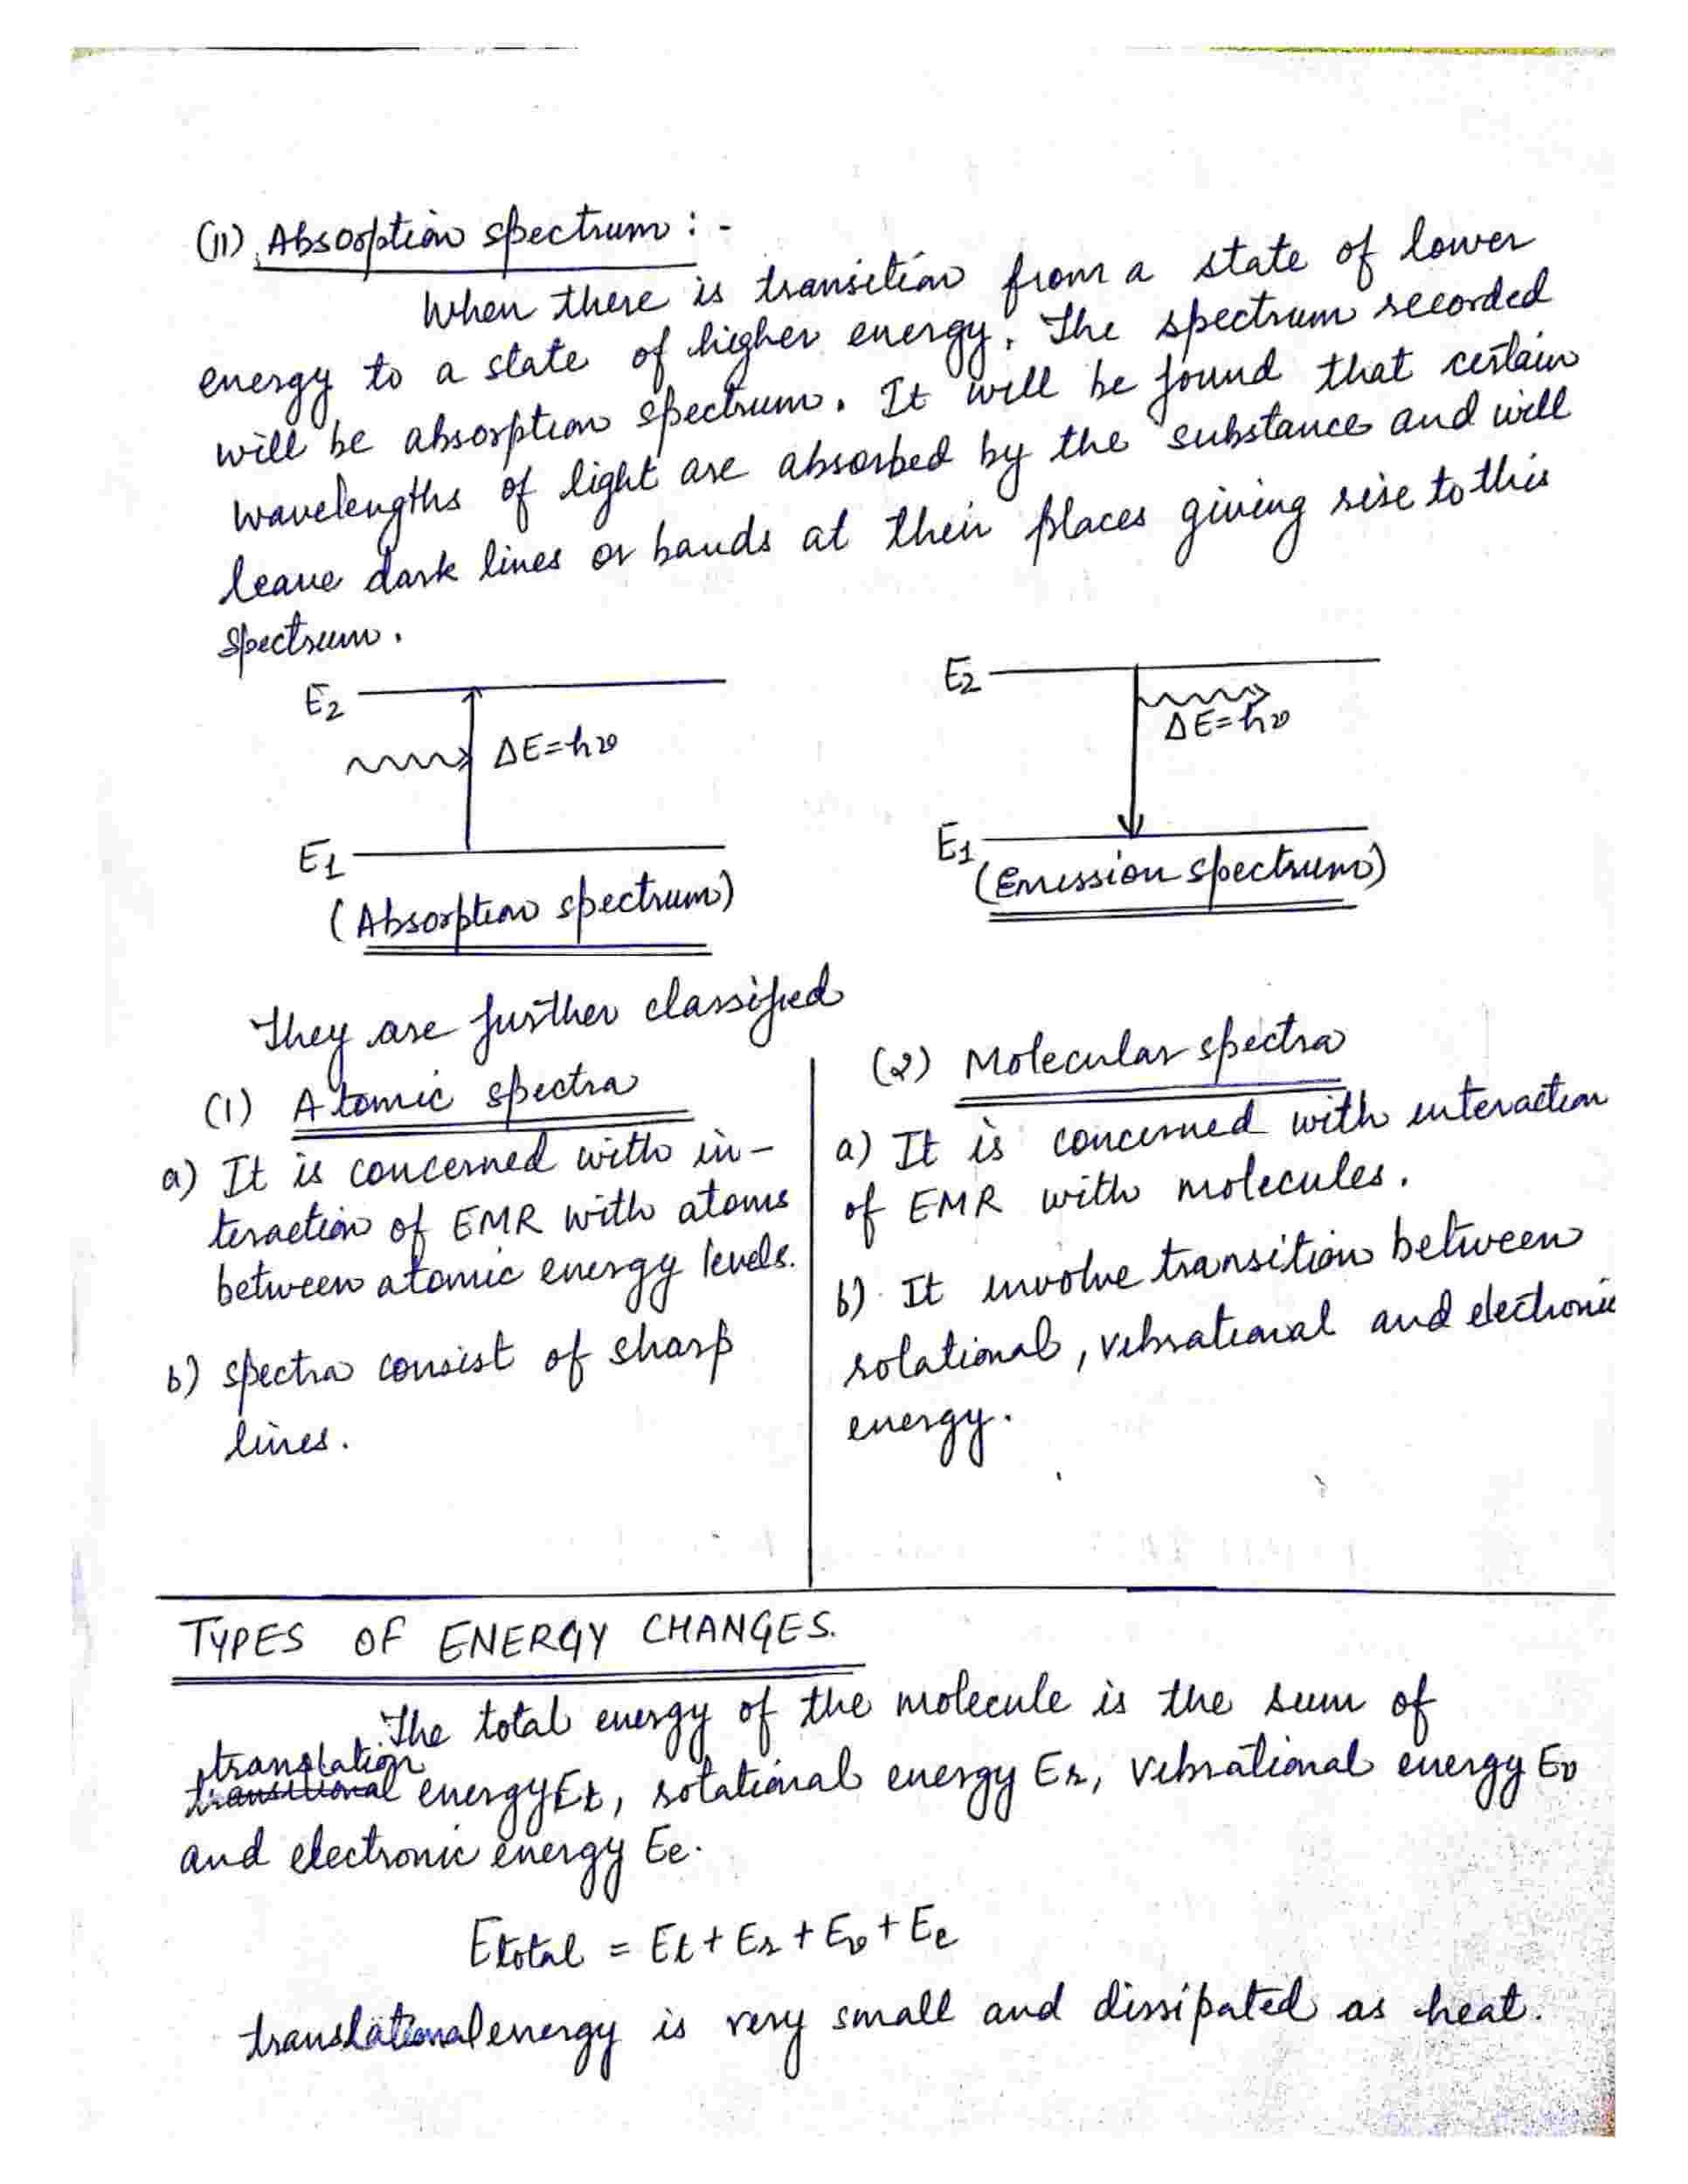 (ii) Absorption spectrum : -
When there is transition from a state of lower
energy to a state of higher energy. The spectrum recorded
will be absorption spectrum. It will be found that certain
wavelengths of light are absorbed by the substance and will
leave dark lines or bands at their places giving rise to this
spectrum.
E2
ΔE=hν
E1
(Absorption spectrum)
E2
ΔE=hν
E1
(Emission spectrum)
They are further classified
(1) Atomic spectra
a) It is concerned with in-
teraction of EMR with atoms
between atomic energy levels.
b) spectra consist of sharp
lines.
(2) Molecular spectra
a) It is concerned with interaction
of EMR with molecules.
b) It involve transition between
rotational, vibrational and electronic
energy.
TYPES OF ENERGY CHANGES.
The total energy of the molecule is the sum of
translation
transitional energy Et, rotational energy Er, vibrational energy Ev
and electronic energy Ee.
Etotal = Et + Er + Ev + Ee
translational energy is very small and dissipated as heat.